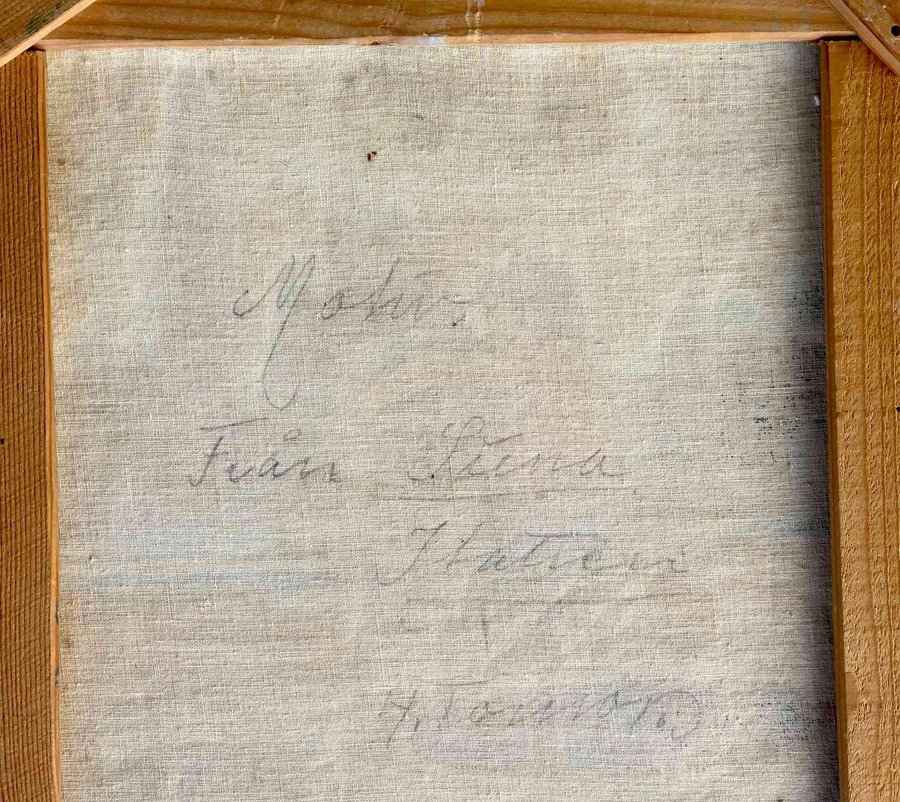 Motiv
Från Siena
Italien
H.